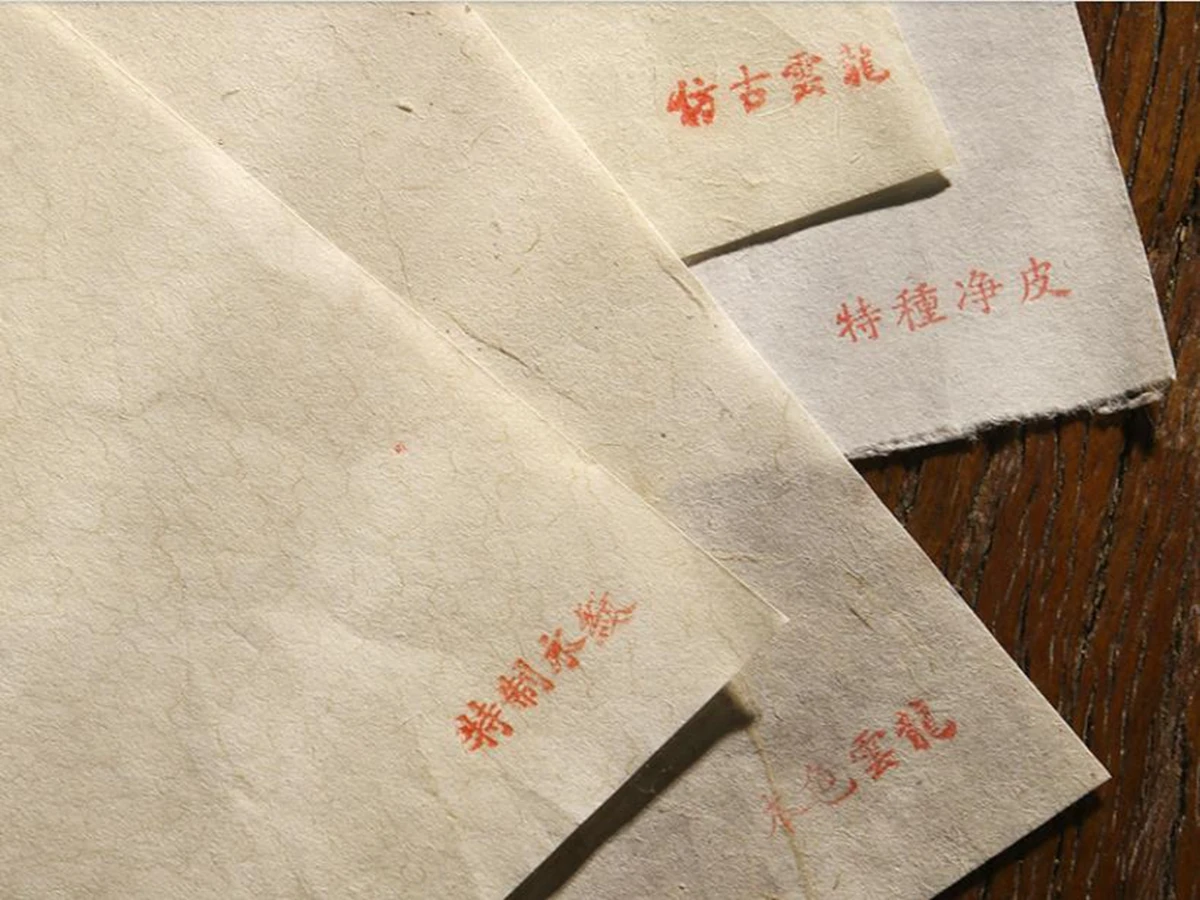 仿古雲龍
特種净皮
特制水紋
本色雲龍